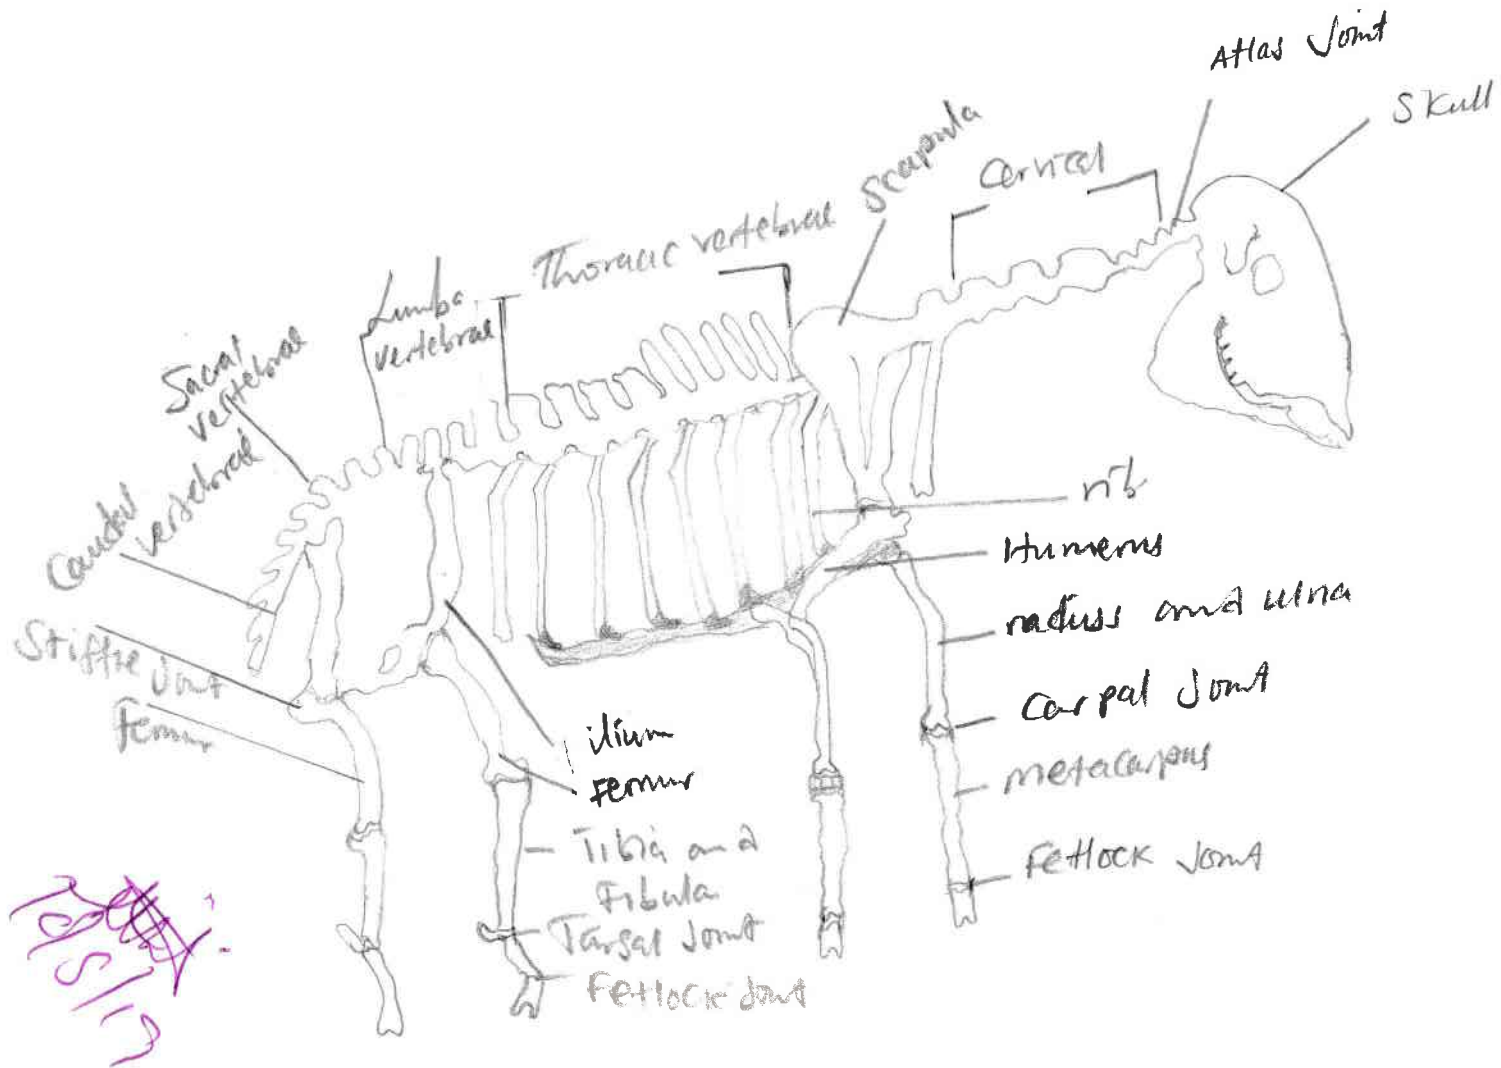 Atlas Joint
Skull
Cervical
Scapula
Thoracic vertebrae
Lumba
vertebrae
Sacral
vertebrae
Caudal
vertebrae
Stiffle Joint
femur
rib
Humerus
radius and ulna
Carpal Joint
metacarpus
Fetlock Joint
ilium
Femur
Tibia and
Fibula
Tarsal Joint
Fetlock Joint